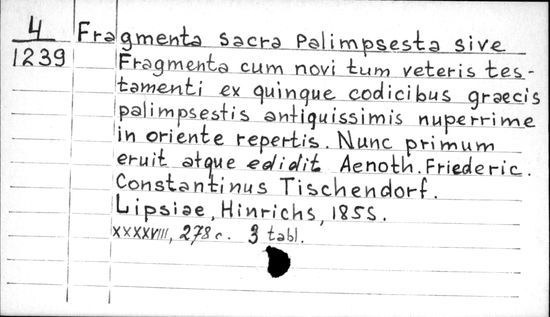 4 Fragmenta sacra Palimpsesta sive
1239 Fragmenta cum novi tum veteris tes-
tamenti ex quinque codicibus graecis
palimpsestis antiquissimis nuperrime
in oriente repertis. Nunc primum
eruit atque edidit Aenoth. Friederic.
Constantinus Tischendorf.
Lipsiae, Hinrichs, 1855.
XXXXVIII, 278 c. 3 tabl.